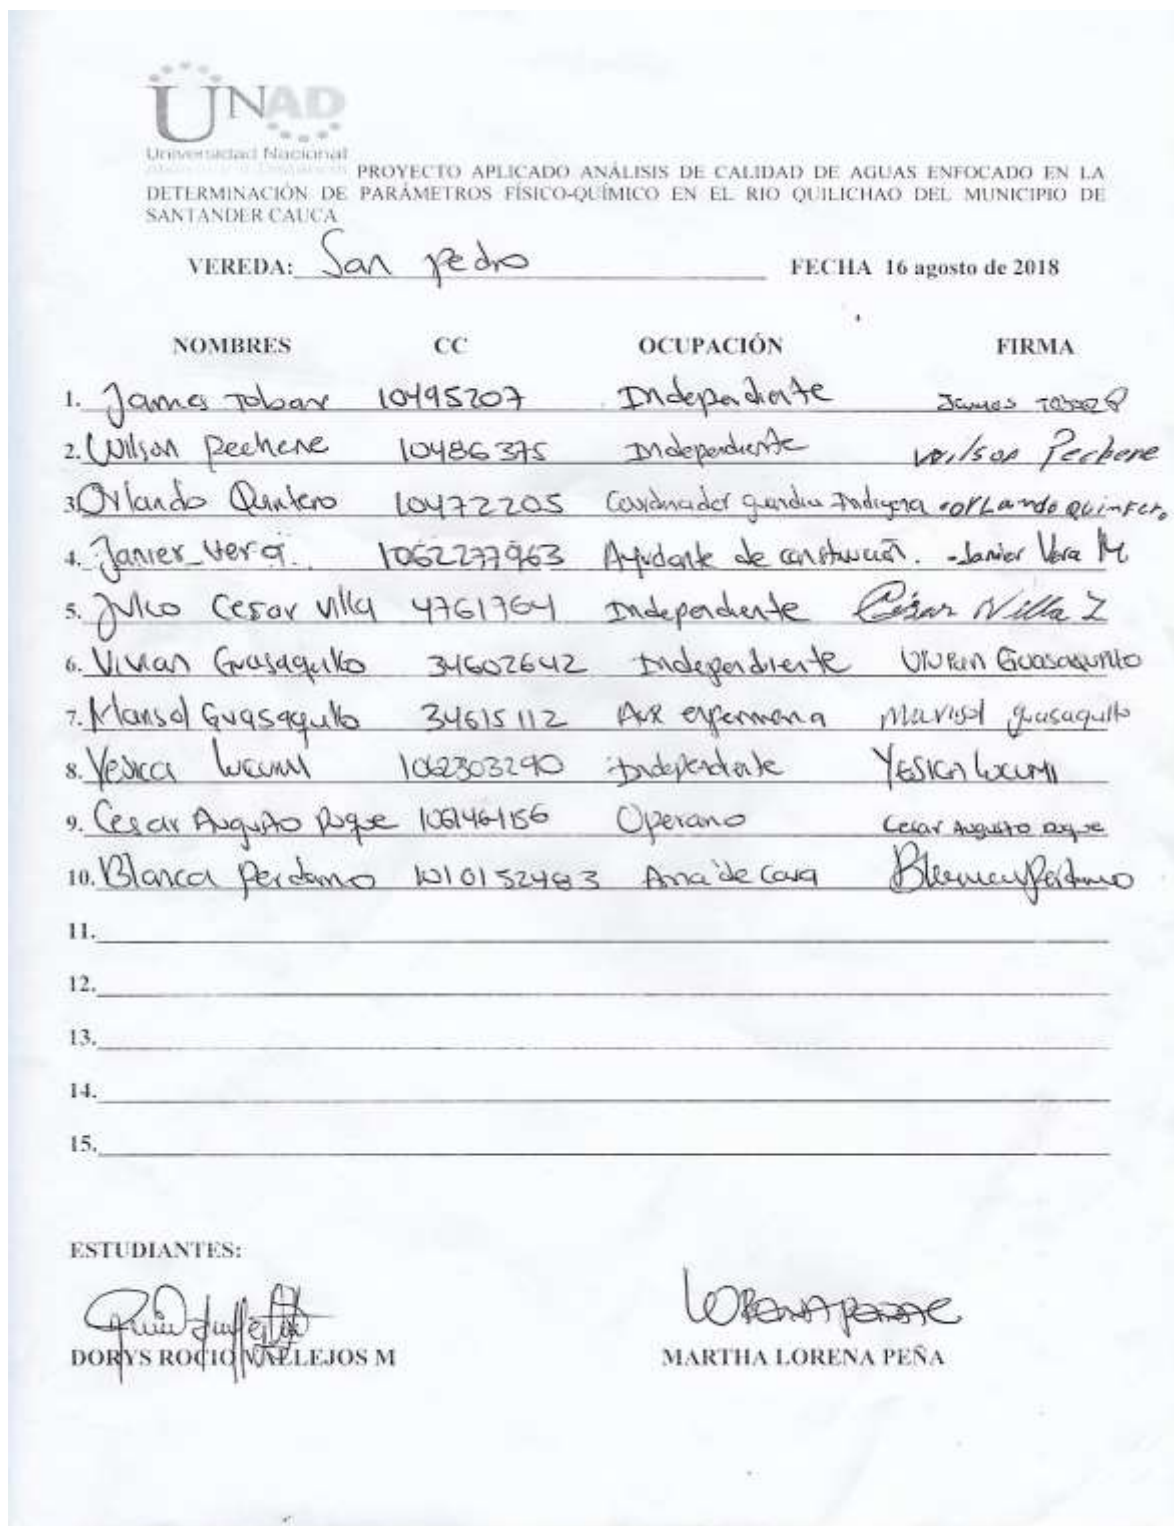 UNAD
Universidad Nacional
PROYECTO APLICADO ANÁLISIS DE CALIDAD DE AGUAS ENFOCADO EN LA
DETERMINACIÓN DE PARÁMETROS FÍSICO-QUÍMICO EN EL RIO QUILICHAO DEL MUNICIPIO DE
SANTANDER CAUCA
VEREDA: San pedro FECHA 16 agosto de 2018
NOMBRES CC OCUPACIÓN FIRMA
1. James Tobar 10495207 Independiente James Tobar
2. Wilson Pechene 10486375 Independiente Wilson Pechene
3. Orlando Quintero 10472205 Coordinador guardia Indigena ORLando QUINTERO
4. Janier Vera 1062277963 Ayudante de construcción. Janier Vera M
5. Julio Cesar Villa 4761764 Independiente César Villa Z
6. Vivian Guasaquillo 34602642 Independiente VIVIAN GUASAQUILLO
7. Marisol Guasaquillo 34615112 Aux enfermeria Marisol guasaquillo
8. Yesica Lucumi 1062303290 Independiente YESICA LUCUMI
9. Cesar Augusto Duque Operario Cesar Augusto Duque
10. Blanca Perdomo Ama de Casa Perdomo
11.
12.
13.
14.
15.
ESTUDIANTES:
LORENA PEÑA
DORYS ROCIO VALLEJOS M MARTHA LORENA PEÑA